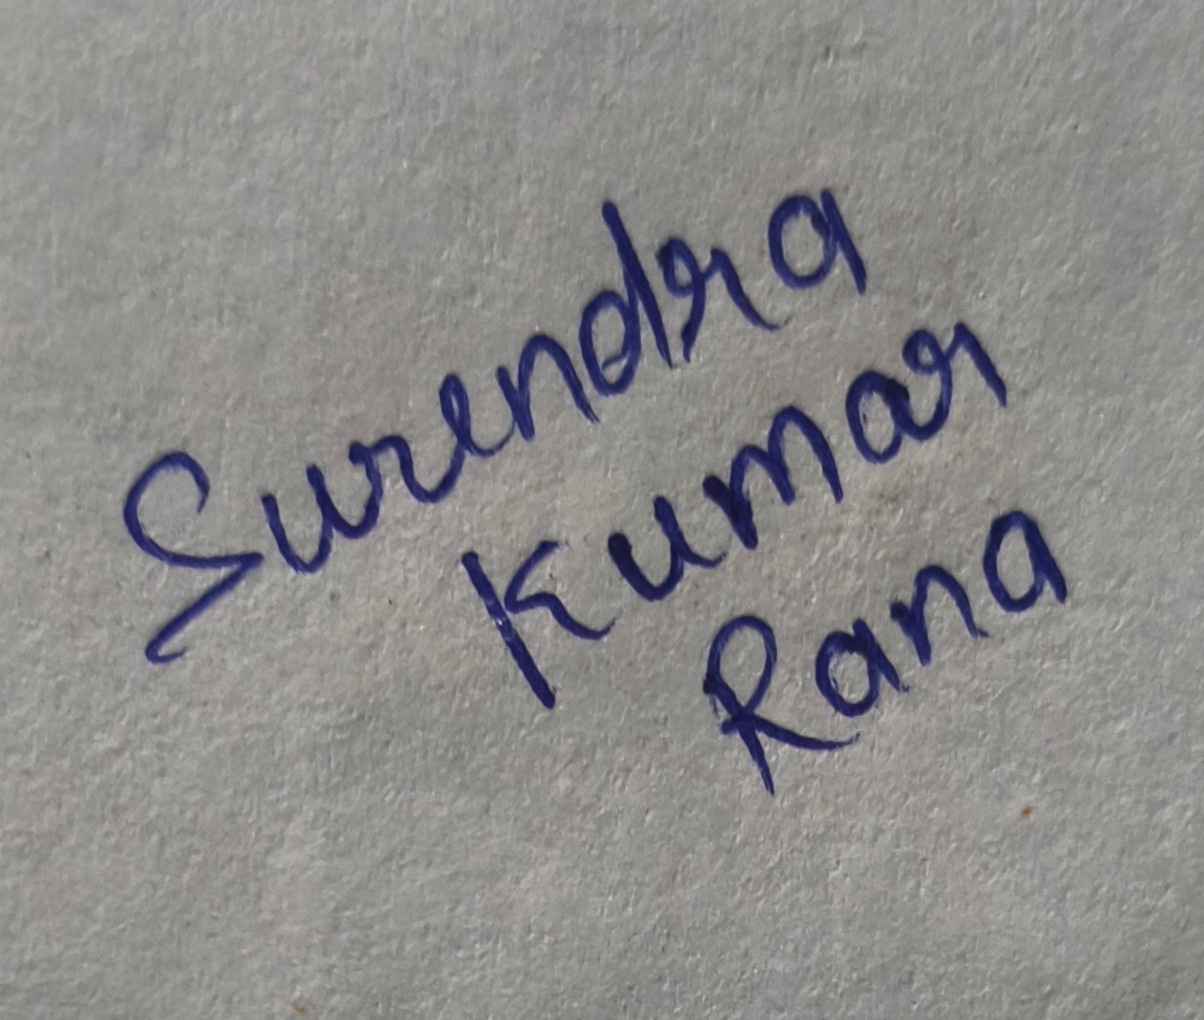 Surendra
Kumar
Rana